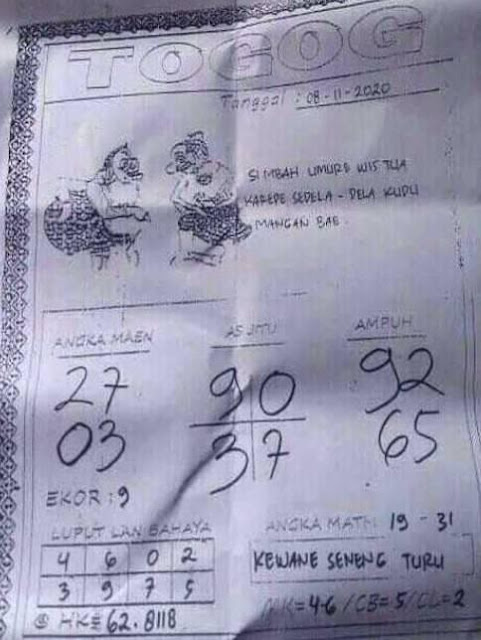 TOGOG
Tanggal : 08-11-2020
SI MBAH UMURE WIS TUA
KAREPE SEDELA - DELA KUDU
MANGAN BAE
ANGKA MAEN
27
03
EKOR : 9
AS JITU
9 0
3 7
AMPUH
92
65
LUPUT LAN BAHAYA
4 6 0 2
3 9 7 5
HK = 62.8118
ANGKA MATI : 19 - 31
KEWANE SENENG TURU
MK = 4-6 / CB = 5 / CL = 2